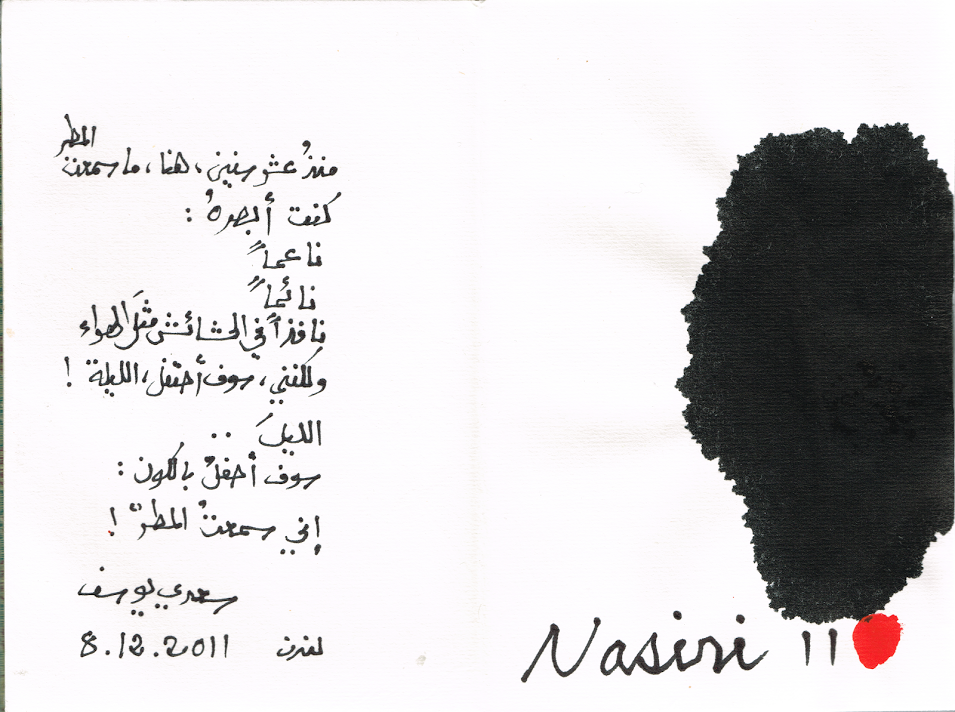 منذُ عشر سنين، هنا، ما سمعت المطر
كنت أُبصرهُ :
ناعماً
نائماً
نافذاً في الحشائش مثلَ الهواء
ولكنني، سوف أحتفل، الليلة !
الليلَ ..
سوف أحفلُ بالكون :
إني سمعتُ المطرَ !
سعدي يوسف
لندن 8.12.2011
Nasiri 11